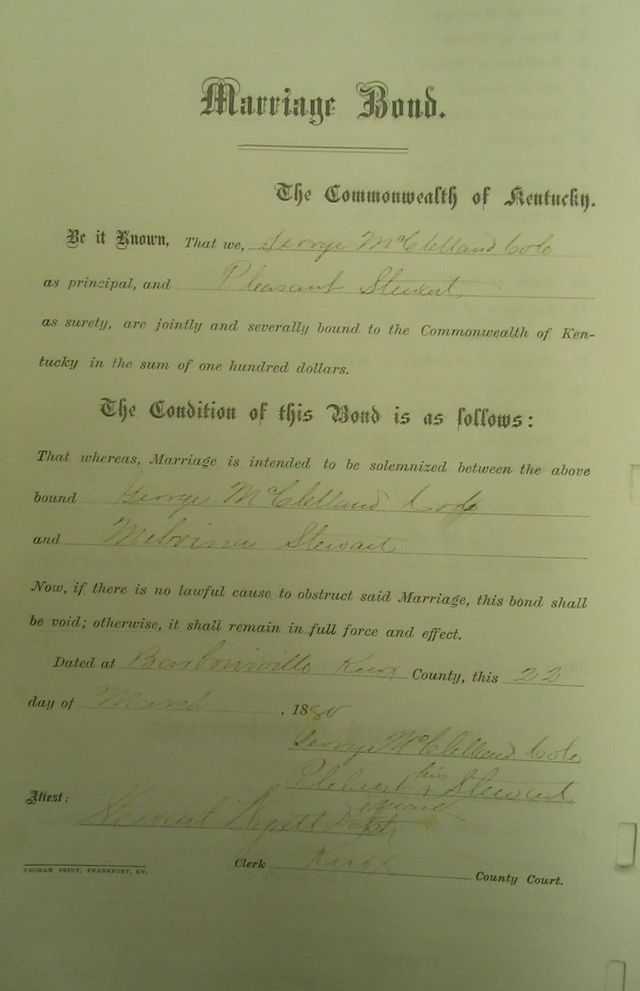 Marriage Bond.
The Commonwealth of Kentucky.
Be it Known, That we, George McClelland Cole
as principal, and Pleasant Stewart
as surety, are jointly and severally bound to the Commonwealth of Ken-
tucky in the sum of one hundred dollars.
The Condition of this Bond is as follows:
That whereas, Marriage is intended to be solemnized between the above
bound George McClelland Cole
and Melvina Stewart
Now, if there is no lawful cause to obstruct said Marriage, this bond shall
be void; otherwise, it shall remain in full force and effect.
Dated at Barbourville Knox County, this 22
day of March , 1880
George McClelland Cole
his Stewart
mark
Attest:
Clerk Knox County Court.
YEOMAN PRINT, FRANKFORT, KY.